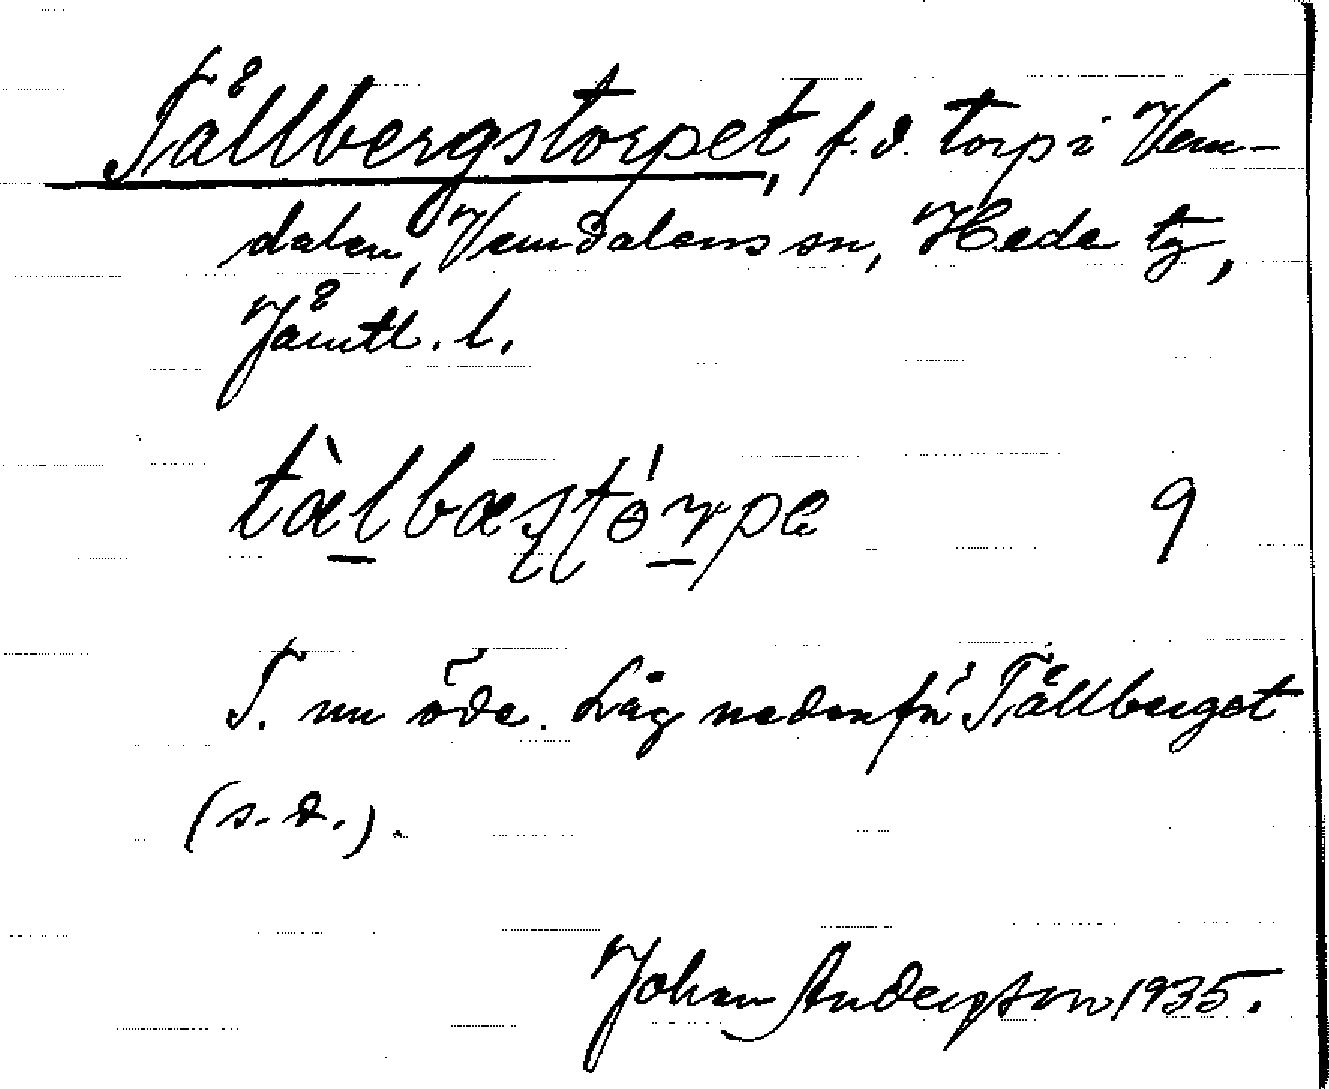 Tållbergstorpet, f.d. torp i Vem-
dalen, Vemdalens sn, Hede tg,
Jämtl. l.
tæ̀l̠bæʂʈɵ́r̠pe 9
T. nu öde. Låg nedanför Tållberget
(s.d.).
Johan Anderson 1935.